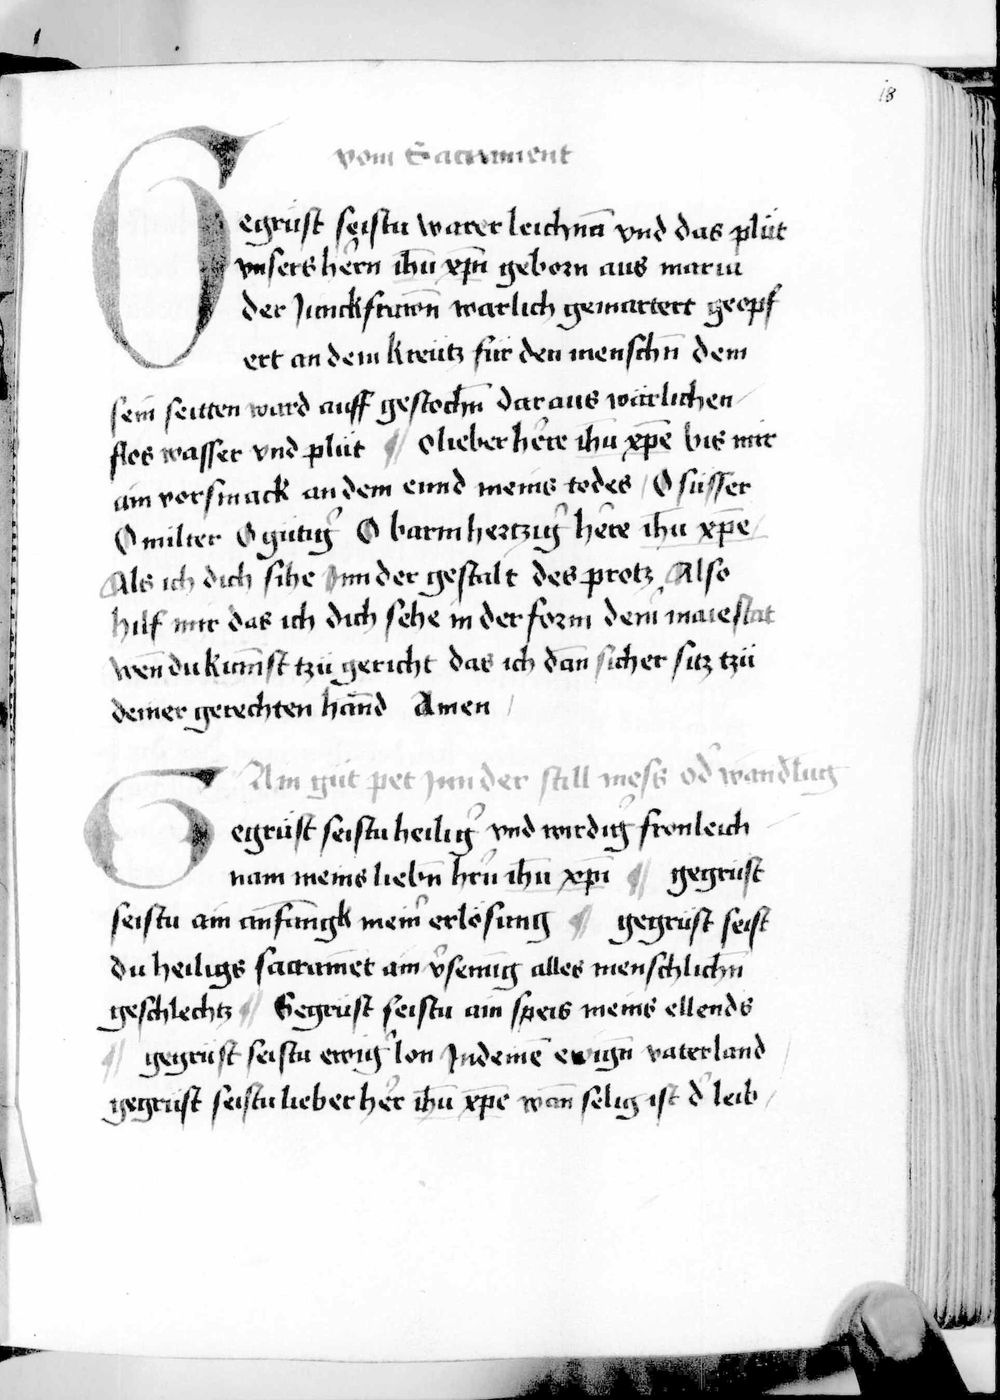 18
vom Sacrament
Gegrüst seistu warer leichnā vnd das plüt
vnsers herrn ihū xp̄i geborn aus maria
der Junckfrawn̄ warlich gemartert geopf
ert an dem kreütz für den menschn̄ dem
sein seitten ward auff gestochn̄ daraus wärlichen
flos wasser vnd plüt ¶ O lieber herre ihū xp̄e bis mir
ain vorsmack an dem ennd meins todes / O süsser
O milter O gütiger O barmhertziger herre ihū xp̄e /
Als ich dich sihe Jnn der gestalt des protz Also
hilf mir das ich dich sehe in der form deiner maiestat
wen̄ du kum̄st tzü gericht das ich dan̄ sicher sitz tzü
deiner gerechten han̄d Amen /
Ain güt pet Jnn der still mess oder wandlūg
Gegrüst seistu heiliger vnd wirdiger fronleich
nam meins liebn̄ hern̄ ihū xp̄i ¶ gegrüst
seistu ain anfangk meiner erlösung ¶ gegrüst seist
du heiligs sacramēt ain versenung alles menschlichn̄
geschlechtz ¶ Gegrüst seistu ain speis meins ellends
¶ gegrüst seistu ewiger lon Jn deinē ewign̄ vaterland
gegrüst seistu lieber herr ihū xp̄e wan̄ selig ist der leib /